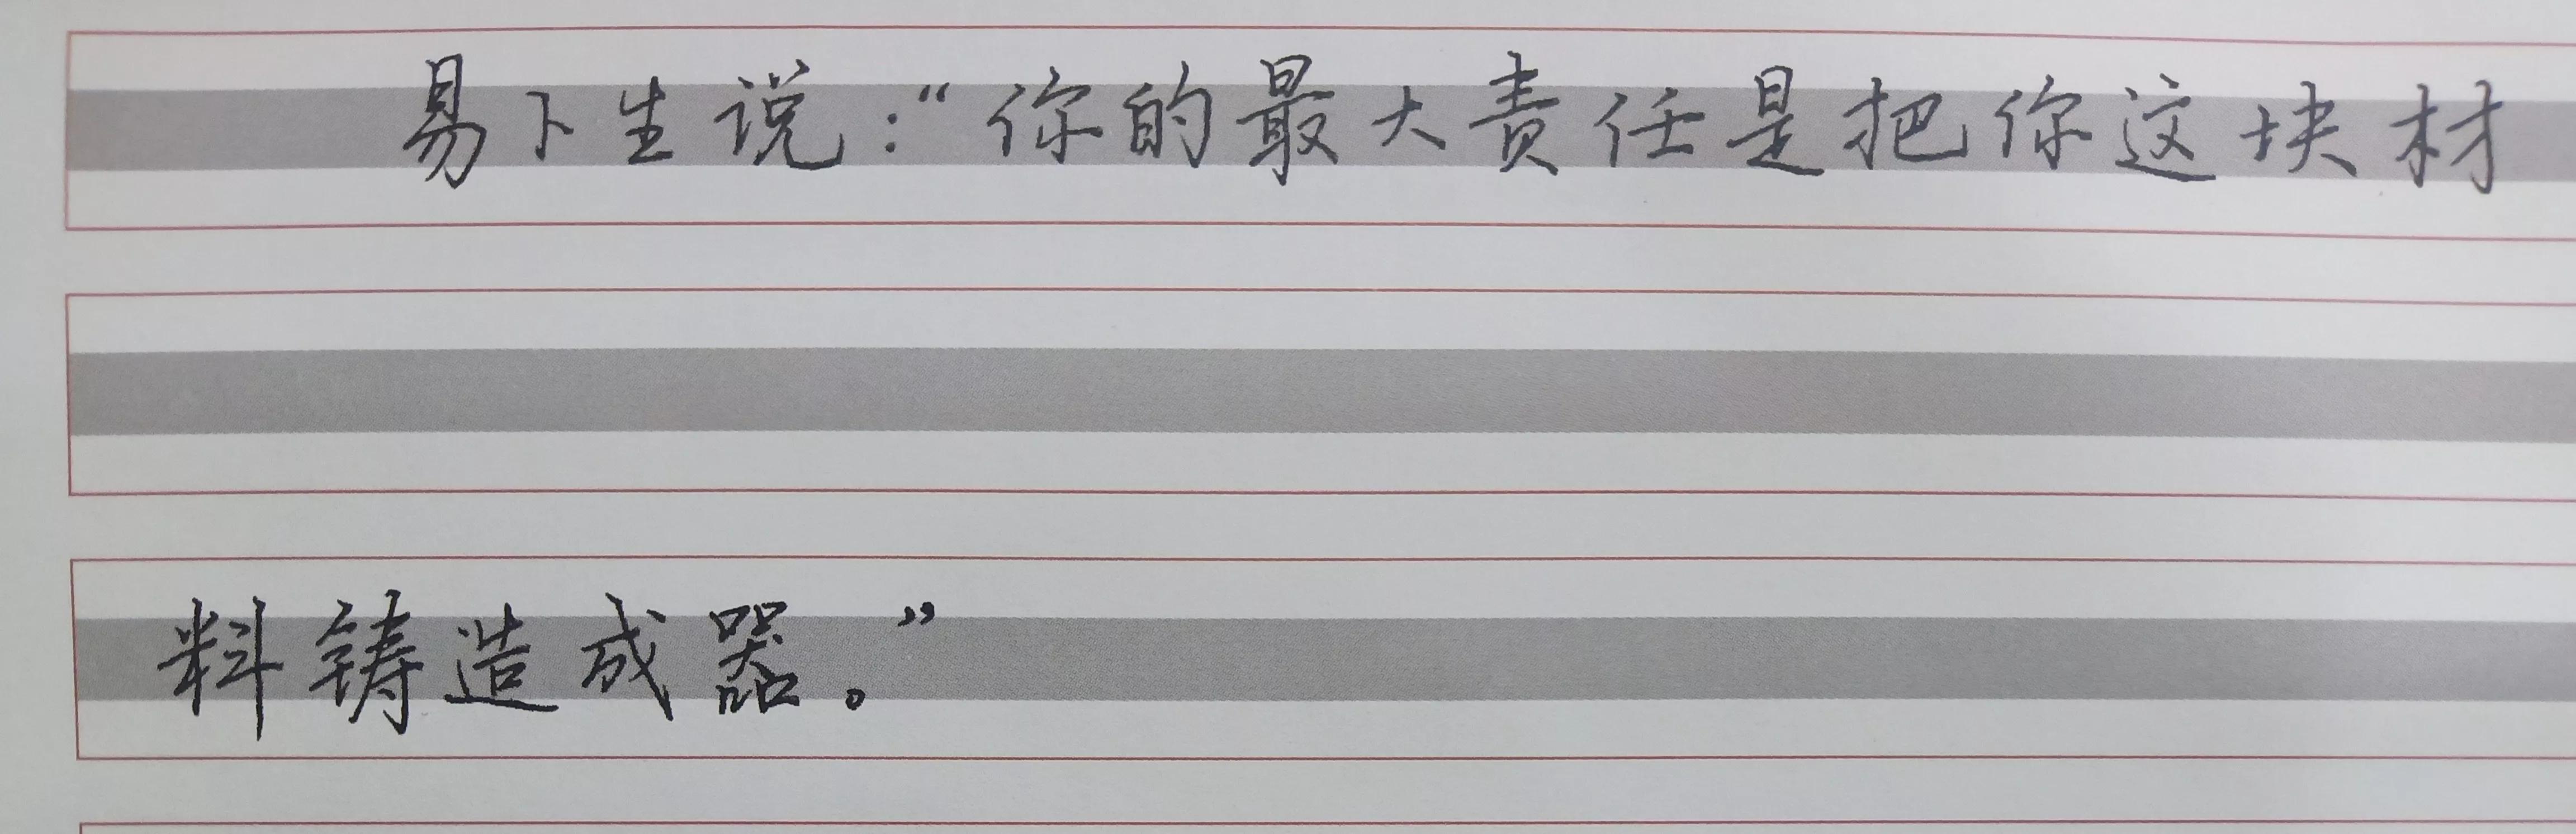 易卜生说：“你的最大责任是把你这块材
料铸造成器。”